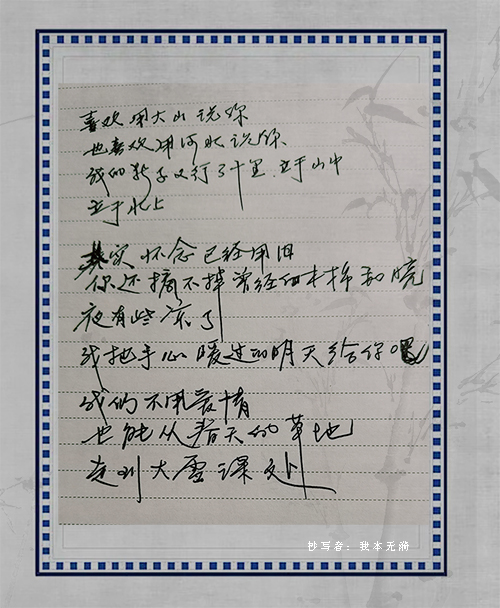 喜欢用大山说你
也喜欢用河水说你
我的鞋子又行了十里 立于山中
立于水上
其实 怀念已经用旧
你还摘不掉曾经的木棉和
夜有些凉了
我把手心暖过的明天给你
我们不用爱情
也能从春天的草地
走到大雪深处
抄写者：我本无漪